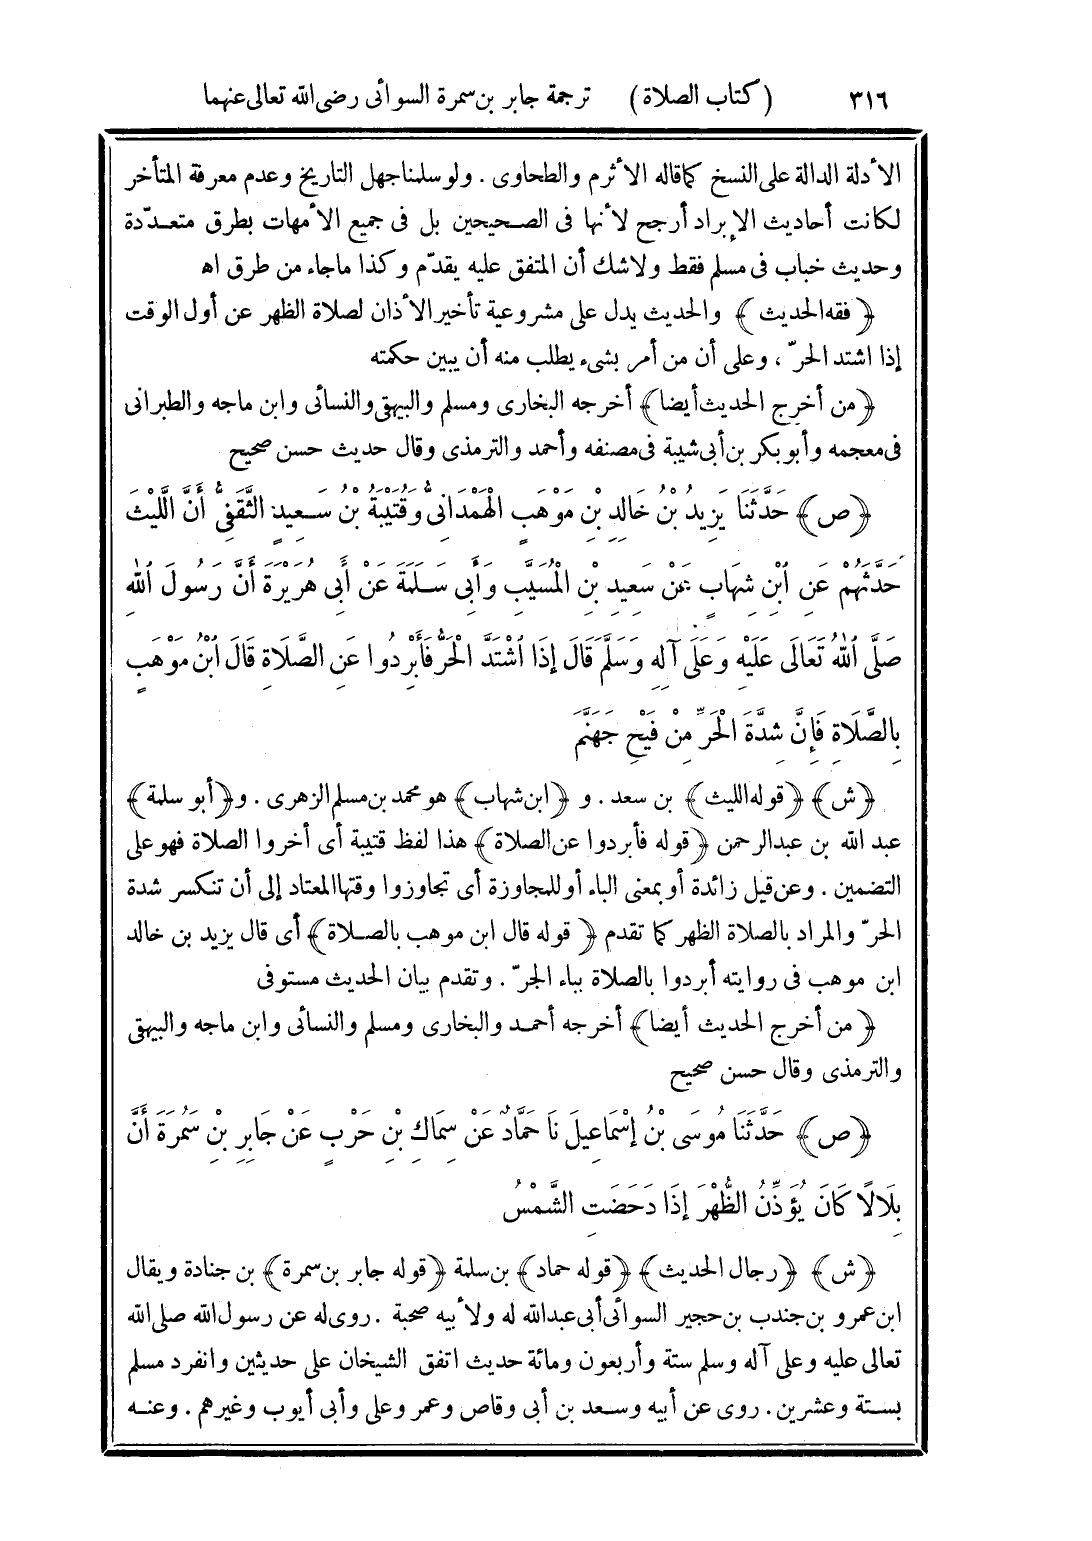 ٣١٦ (كتاب الصلاة) ترجمة جابر بن سمرة السوائى رضى الله تعالى عنهما
الأدلة الدالة على النسخ كما قاله الأثرم والطحاوى . ولو سلمنا جهل التاريخ وعدم معرفة المتأخر
لكانت أحاديث الإبراد أرجح لأنها فى الصحيحين بل فى جميع الأمهات بطرق متعدّدة
وحديث خباب فى مسلم فقط ولاشك أن المتفق عليه يقدّم وكذا ماجاء من طرق اه
﴿فقه الحديث﴾ والحديث يدل على مشروعية تأخير الأذان لصلاة الظهر عن أول الوقت
إذا اشتد الحرّ ، وعلى أن من أمر بشىء يطلب منه أن يبين حكمته
﴿من أخرج الحديث أيضا﴾ أخرجه البخارى ومسلم والبيهقى والنسائى وابن ماجه والطبرانى
فى معجمه وأبو بكر بن أبى شيبة فى مصنفه وأحمد والترمذى وقال حديث حسن صحيح
﴿ص﴾ حَدَّثَنَا يَزِيدُ بْنُ خَالِدِ بْنِ مَوْهَبٍ الْهَمْدَانِىُّ وَقُتَيْبَةُ بْنُ سَعِيدٍ الثَّقَفِىُّ أَنَّ اللَّيْثَ
حَدَّثَهُمْ عَنِ ابْنِ شِهَابٍ عَنْ سَعِيدِ بْنِ الْمُسَيَّبِ وَأَبِى سَلَمَةَ عَنْ أَبِى هُرَيْرَةَ أَنَّ رَسُولَ اللهِ
صَلَّى اللهُ تَعَالَى عَلَيْهِ وَعَلَى آلِهِ وَسَلَّمَ قَالَ إِذَا اشْتَدَّ الْحَرُّ فَأَبْرِدُوا عَنِ الصَّلَاةِ قَالَ ابْنُ مَوْهَبٍ
بِالصَّلَاةِ فَإِنَّ شِدَّةَ الْحَرِّ مِنْ فَيْحِ جَهَنَّمَ
﴿ش﴾ ﴿قوله الليث﴾ بن سعد . و ﴿ابن شهاب﴾ هو محمد بن مسلم الزهرى . و﴿أبو سلمة﴾
عبد الله بن عبد الرحمن ﴿قوله فأبردوا عن الصلاة﴾ هذا لفظ قتيبة أى أخروا الصلاة فهو على
التضمين . وعن قيل زائدة أو بمعنى الباء أو للمجاوزة أى تجاوزوا وقتها المعتاد إلى أن تنكسر شدة
الحرّ والمراد بالصلاة الظهر كما تقدم ﴿ قوله قال ابن موهب بالصلاة﴾ أى قال يزيد بن خالد
ابن موهب فى روايته أبردوا بالصلاة بباء الجرّ . وتقدم بيان الحديث مستوفى
﴿من أخرج الحديث أيضا﴾ أخرجه أحمد والبخارى ومسلم والنسائى وابن ماجه والبيهقى
والترمذى وقال حسن صحيح
﴿ص﴾ حَدَّثَنَا مُوسَى بْنُ إِسْمَاعِيلَ نَا حَمَّادٌ عَنْ سِمَاكِ بْنِ حَرْبٍ عَنْ جَابِرِ بْنِ سَمُرَةَ أَنَّ
بِلَالًا كَانَ يُؤَذِّنُ الظُّهْرَ إِذَا دَحَضَتِ الشَّمْسُ
﴿ش﴾ ﴿رجال الحديث﴾ ﴿قوله حماد﴾ بن سلمة ﴿قوله جابر بن سمرة﴾ بن جنادة ويقال
ابن عمرو بن جندب بن حجير السوائى أبى عبد الله له ولأبيه صحبة . روى له عن رسول الله صلى الله
تعالى عليه وعلى آله وسلم ستة وأربعون ومائة حديث اتفق الشيخان على حديثين وانفرد مسلم
بستة وعشرين . روى عن أبيه وسعد بن أبى وقاص وعمر وعلى وأبى أيوب وغيرهم . وعنه